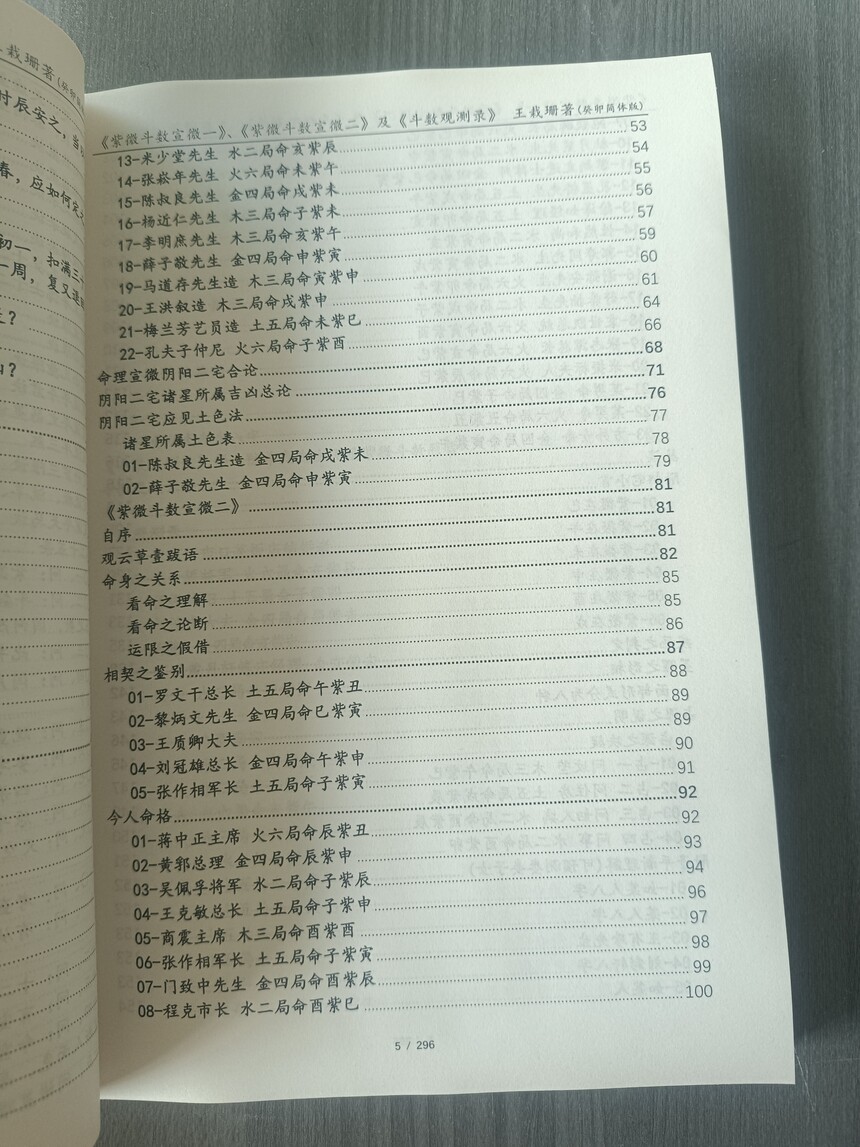 栽珊著(癸卯
时辰安之，当
春，应如何定
初一，扣满三
一周，复又退
？
？
《紫微斗数宣微一》、《紫微斗数宣微二》及《斗数观测录》 王栽珊著(癸卯简体版)
13-米少堂先生 水二局命亥紫辰 53
14-张崧年先生 火六局命未紫午 54
15-陈叔良先生 金四局命戌紫未 55
16-杨近仁先生 木三局命子紫未 56
17-李明庶先生 木三局命亥紫午 57
18-薛子敬先生 金四局命申紫寅 59
19-马道存先生造 木三局命寅紫申 60
20-王洪叙造 木三局命戌紫申 61
21-梅兰芳艺员造 土五局命未紫巳 64
22-孔夫子仲尼 火六局命子紫酉 66
命理宣微阴阳二宅合论 68
阴阳二宅诸星所属吉凶总论 71
阴阳二宅应见土色法 76
诸星所属土色表 77
01-陈叔良先生造 金四局命戌紫未 78
02-薛子敬先生 金四局命申紫寅 79
《紫微斗数宣微二》 81
自序 81
观云草壹跋语 81
命身之关系 82
看命之理解 85
看命之论断 85
运限之假借 86
相契之鉴别 87
01-罗文干总长 土五局命午紫丑 88
02-黎炳文先生 金四局命巳紫寅 89
03-王质卿大夫 89
04-刘冠雄总长 金四局命午紫申 90
05-张作相军长 土五局命子紫寅 91
今人命格 92
01-蒋中正主席 火六局命辰紫丑 92
02-黄郛总理 金四局命辰紫申 93
03-吴佩孚将军 水二局命子紫辰 94
04-王克敏总长 土五局命子紫申 96
05-商震主席 木三局命酉紫酉 97
06-张作相军长 土五局命子紫寅 98
07-门致中先生 金四局命酉紫辰 99
08-程克市长 水二局命酉紫巳 100
5 / 296